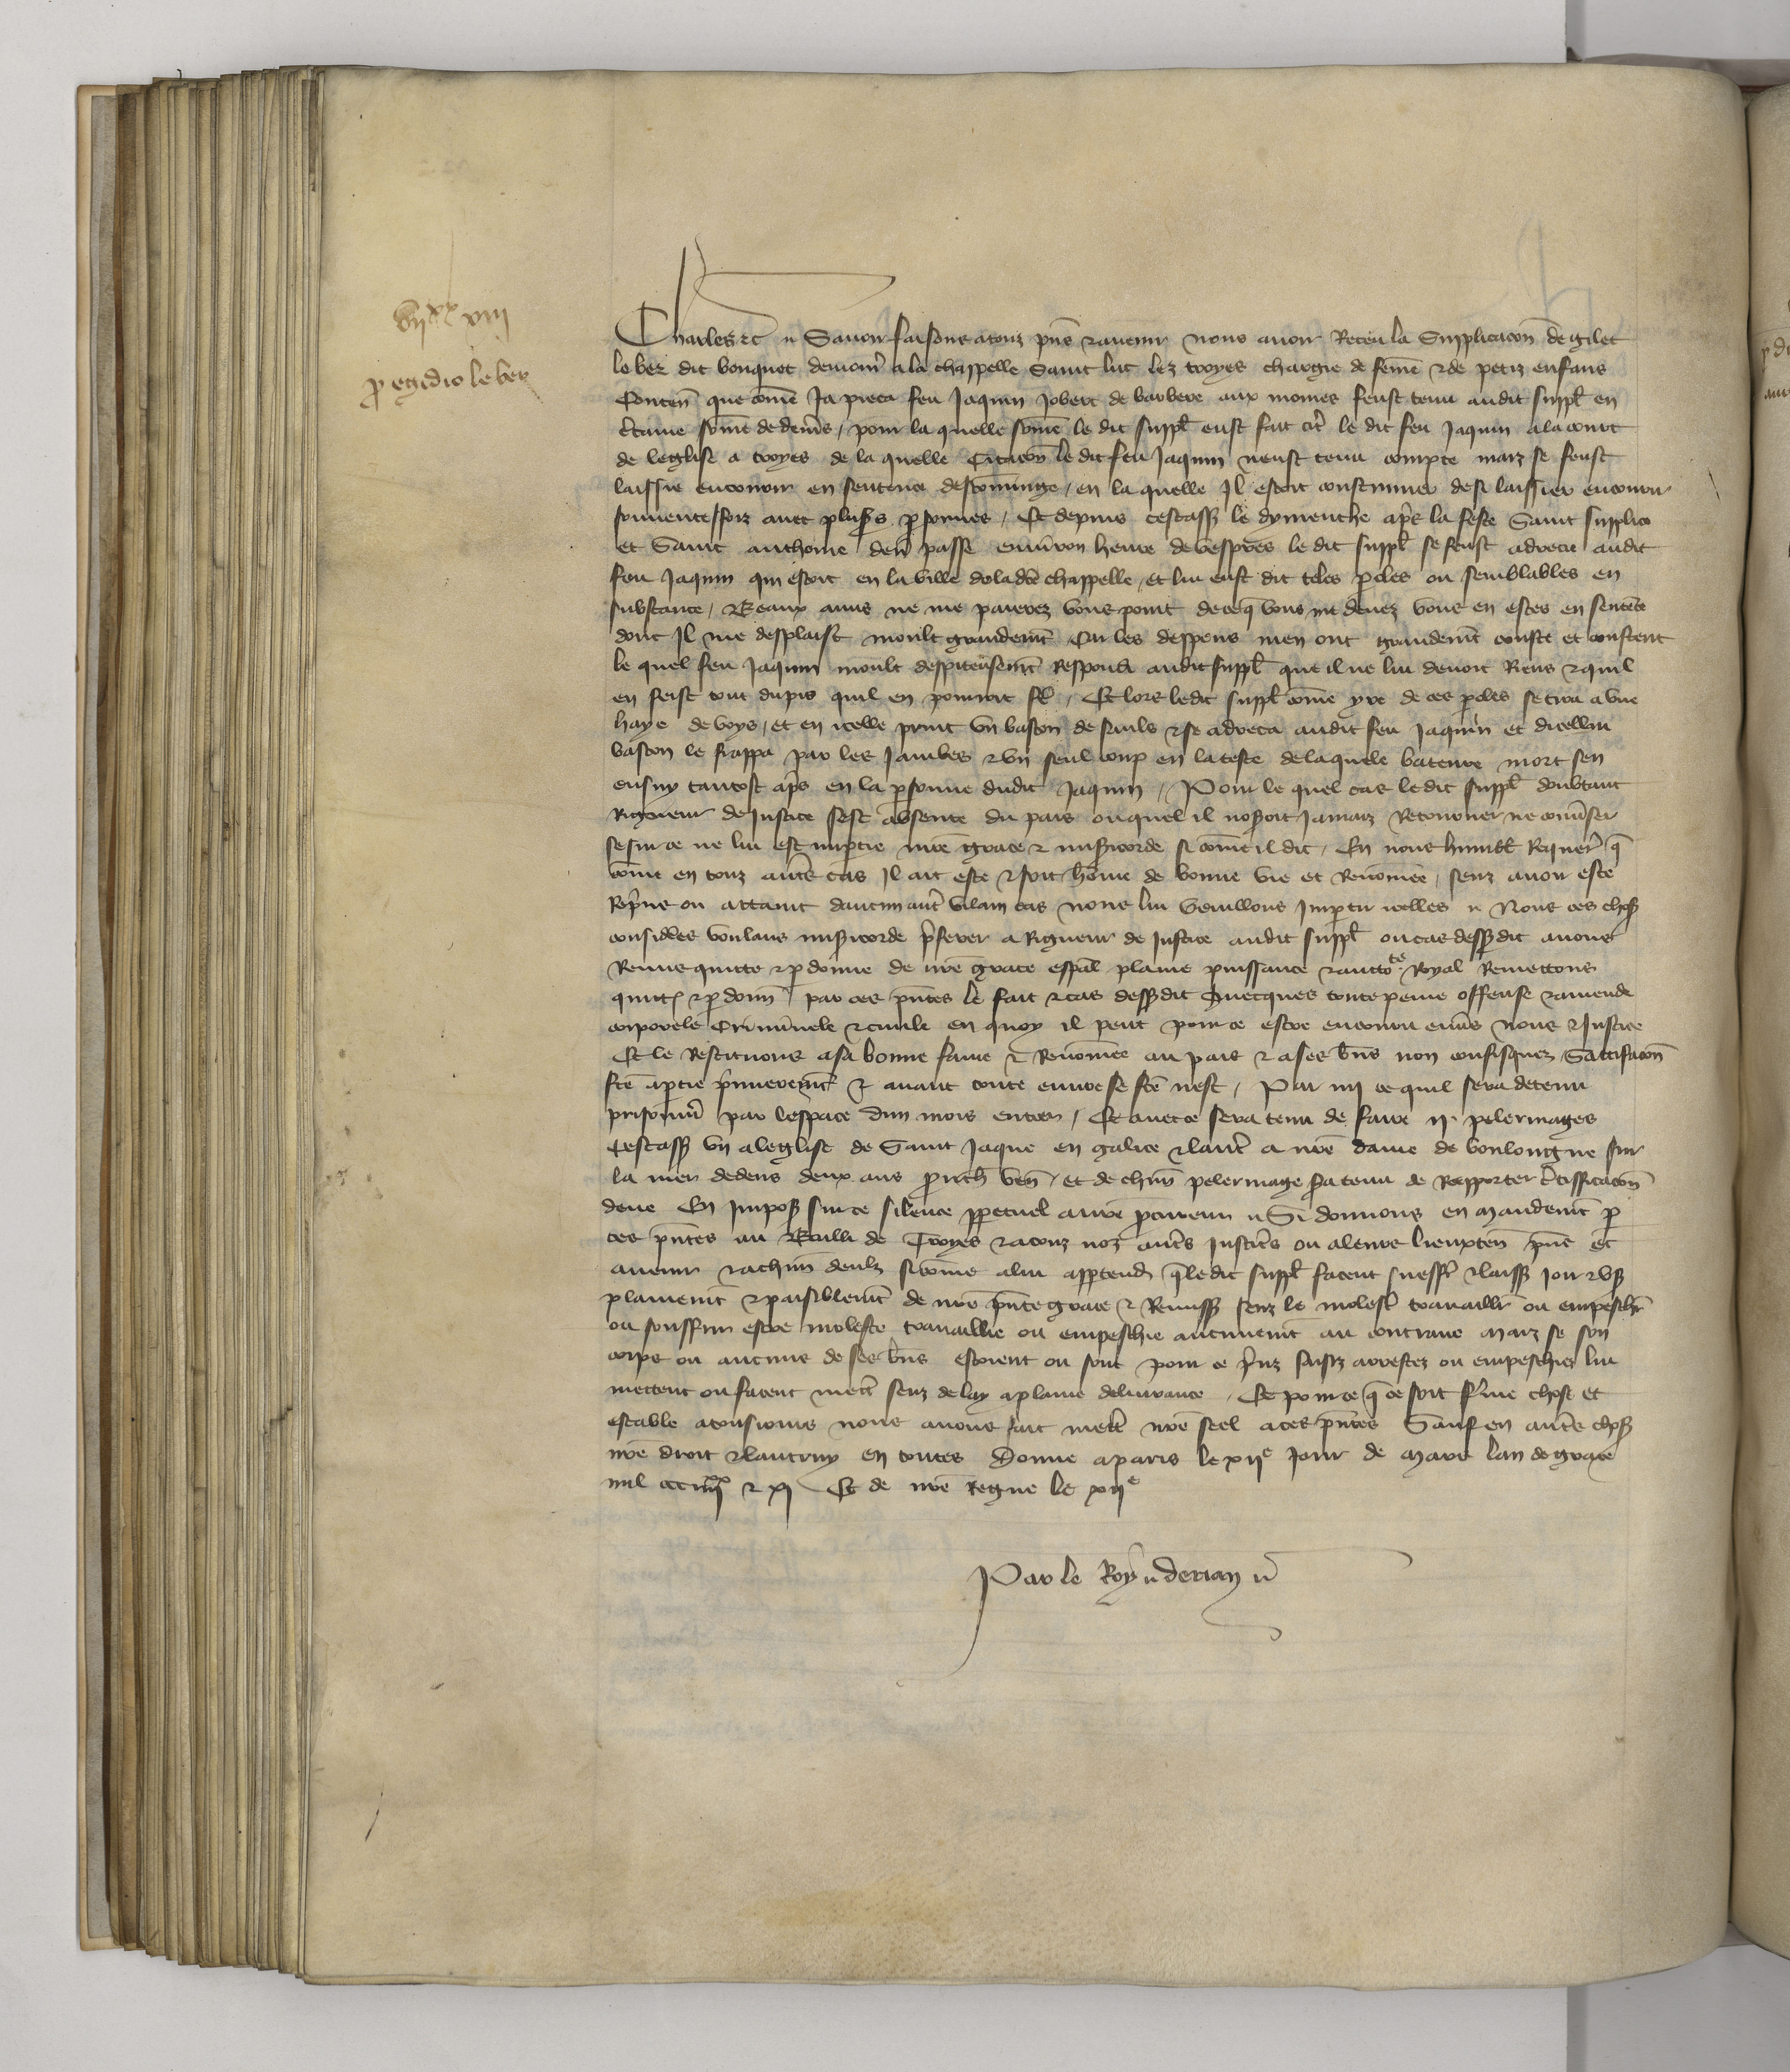 vii xx viii
p egidio le ber
Charles etc Savoir faisons a touz pns et avenir nous avoir Receu la Supplicacion de gilet
le ber dit bouquot demour a la chappelle Saint luc lez troyes chargie de feme et de petiz enfans
Conten que come Ja pieca feu Jaquin Jobert de barbere aux moines feust tenu audit suppl en
ctaine some de deniers / pour la quelle some le dit suppl eust fait citer le dit feu Jaquin a la court
de leglise a troyes de la quelle Citacion le dit feu Jaquin neust tenu compte maiz se feust
laissie encourir en sentence descominge / en la quelle Il estoit coustumier de si laissier encourir
souventesfoiz avec plusrs psonnes / Et depuis cestass le dymenche apres la feste Saint supplice
et Saint anthoine den passe environ heure de vespres le dit suppl se feust adrecie audit
feu Jaquin qui estoit en la ville de ladte chappelle / et lui eust dit teles poles ou semblables en
substance / Beaux amis ne me paierez vous point de ce q vous me devez vous en estes en sentence
dont Il me desplaist moult grandement Car les despens men ont grandemt couste et coustent
le quel feu Jaquin moult despiteusemt Respondi audit suppl que il ne lui devoit Riens et quil
en feist tout du pis quil en pourroit fe / Et lors ledit suppl come yre de ces poles se tira a une
haye de boys / et en icelle print un baston de sauls et se adreca audit feu Jaquin et dicellui
baston le frappa par les Jambes et un seul coup en la teste de laquele bateure mort sen
ensuy tantost aps en la psonne dudit Jaquin / Pour le quel cas ledit suppl doubtant
Rigueur de Justice sest absente du pais ouquel il noseroit Jamaiz Retourner ne converser
se sur ce ne lui est imptie nre grace et misicorde si come il dit / En nous humbl Requer q
come en touz autres cas Il ait este et soit home de bonne vie et Renomee / senz avoir este
Repris ou attaint daucun autre vilain cas nous lui vueillons Imptir icelles Nous ces choses
considees voulans misicorde pferer a Rigueur de Justice audit suppl ou cas dessusdit avons
Remis quitte et pdonne de nre grace espal plaine puissance et auctote Royal Remettons
quitt et pdonn par ces pntes le fait et cas dessusdit Avecques toute peine offense et amende
corporele Criminele et civile en quoy il peut pour ce estre encouru envers nous et Justice
Et le Restituons a sa bonne fame et Renomee au pais et a ses bns non confisquez Satisfacion
fte a ptie pmierement et avant toute euvre se fte nest / Par mi ce quil sera detenu
prisonnier par lespace dun mois entier / Et avec ce sera tenu de faire ii pelerinages
Cestass un a leglise de Saint Jaque en galice et lautre a nre dame de boulongne sur
la mer dedens deux ans prouch ven / et de chun pelerinage sera tenu de Rapporter ctifficacion
deue En Impos sur ce silence ppetuel a nre procureur Si donnons en Mandemt p
ces pntes au Bailli de Troyes et a touz noz autres Justiciers ou a leurs lieuxten pns et
avenir et a chun deulz sicome a lui apptendra q ledit suppl facent sueffrent et laiss Joir et user
plainemt et paisiblement de nre pnte grace et Remission senz le molester travaillir ou empeschr
ou souffrir estre moleste travaillie ou empeschie aucunemt au contraire Maiz se son
corps ou aucuns de ses bns estoient ou sont pour ce prins saisiz arrestez ou empeschiez lui
mettent ou facent mettre senz delay a plaine delivrance / Et pour ce q ce soit ferme chose et
estable a tousiours nous avons fait mettre nre seel a ces pntes Sauf en autres choses
nre droit et lautruy en toutes Donne a paris le xiie Jour de Mars lan de grace
mil ccc iiii xx et xi Et de nre Regne le xiie
Par le Roy derian